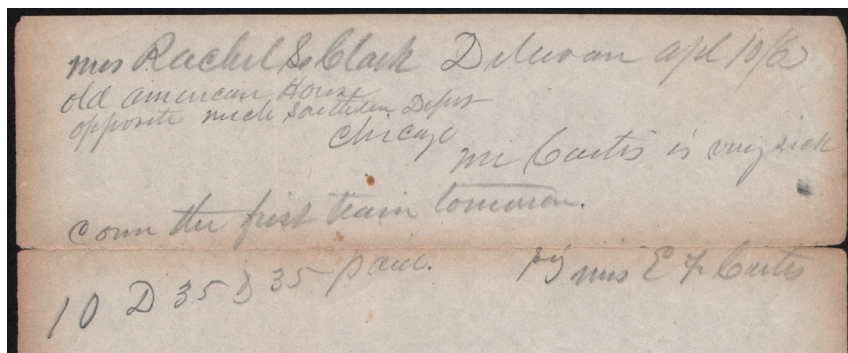 Mrs Rachel S Clark Delavan apl 10/60
old american House
opposite mich Southern Depot
Chicago
Mr Curtis is very sick
Come the first train tomorrow.
10 D 35 D 35 paid. Mrs E F Curtis